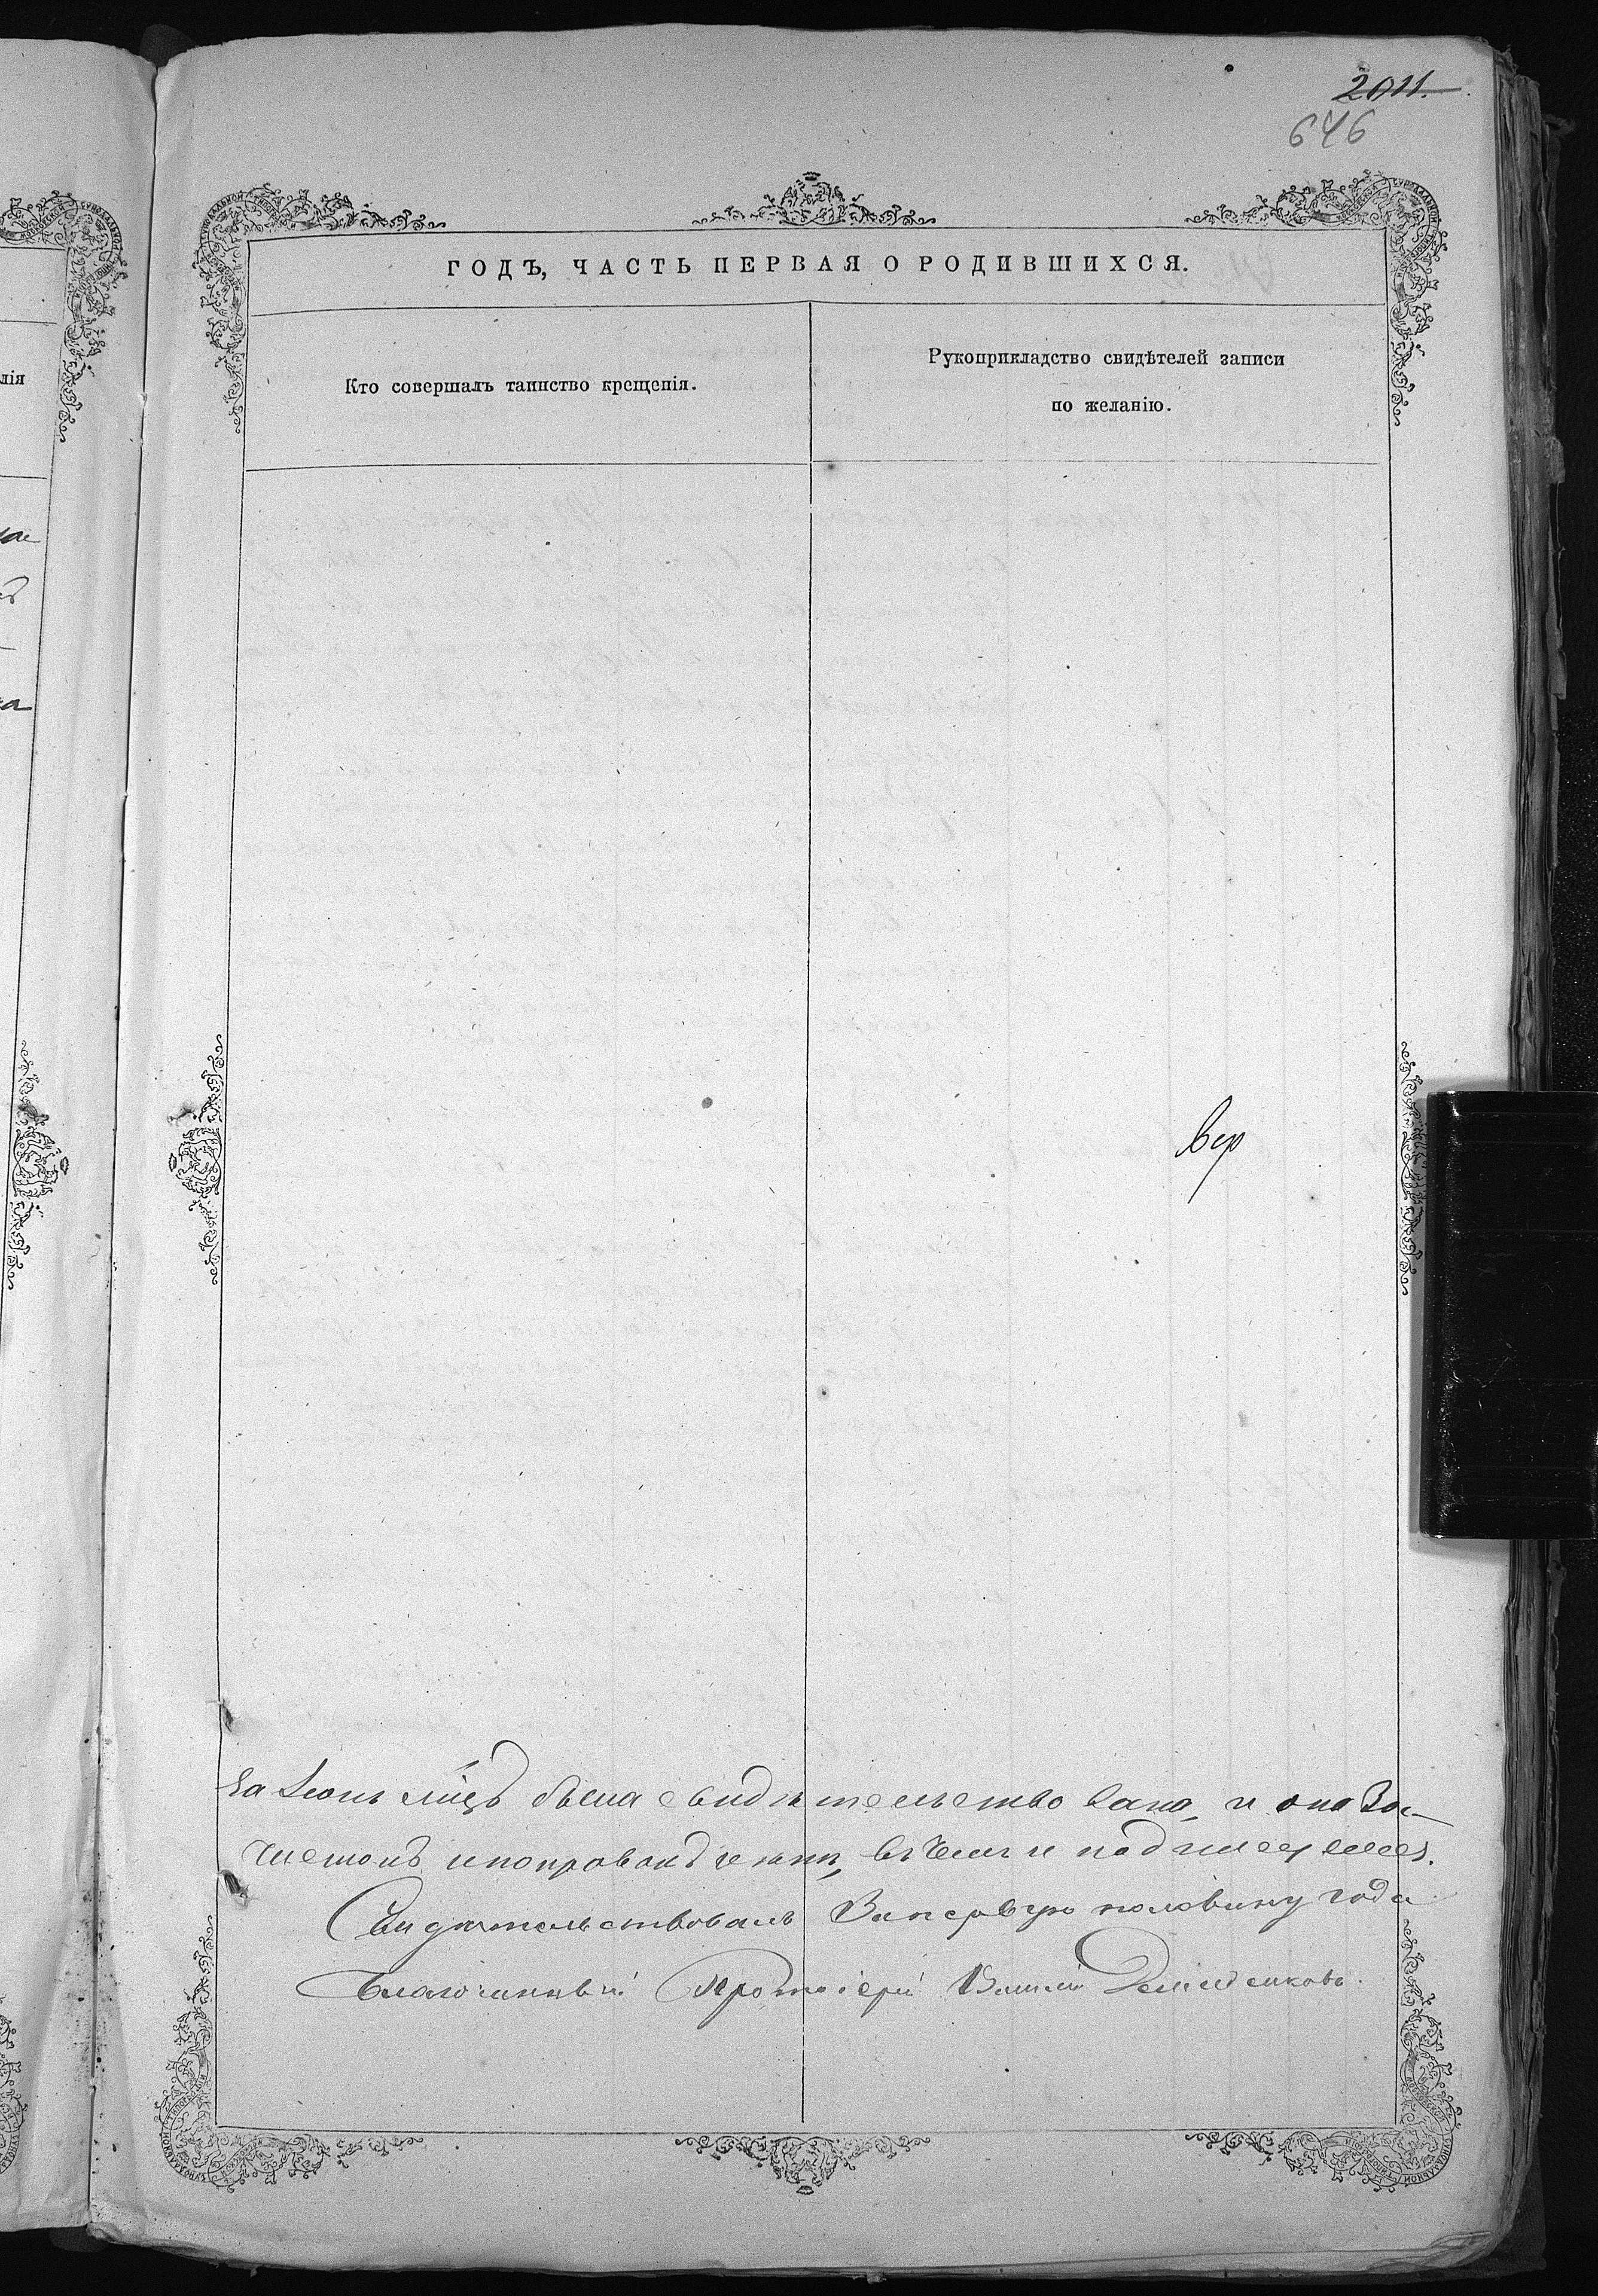 2011.
646
ГОДЪ, ЧАСТЬ ПЕРВАЯ О РОДИВШИХСЯ.
Кто совершалъ таинство крещенія.
Рукоприкладство свидѣтелей записи
по желанію.
лія
на
вер
за Іюнь мц҃ъ была свидѣтельствована, и оказа-
въ чемъ и подпис
Свидѣтельствовалъ За первую половину года
Благочинный Протоіерей